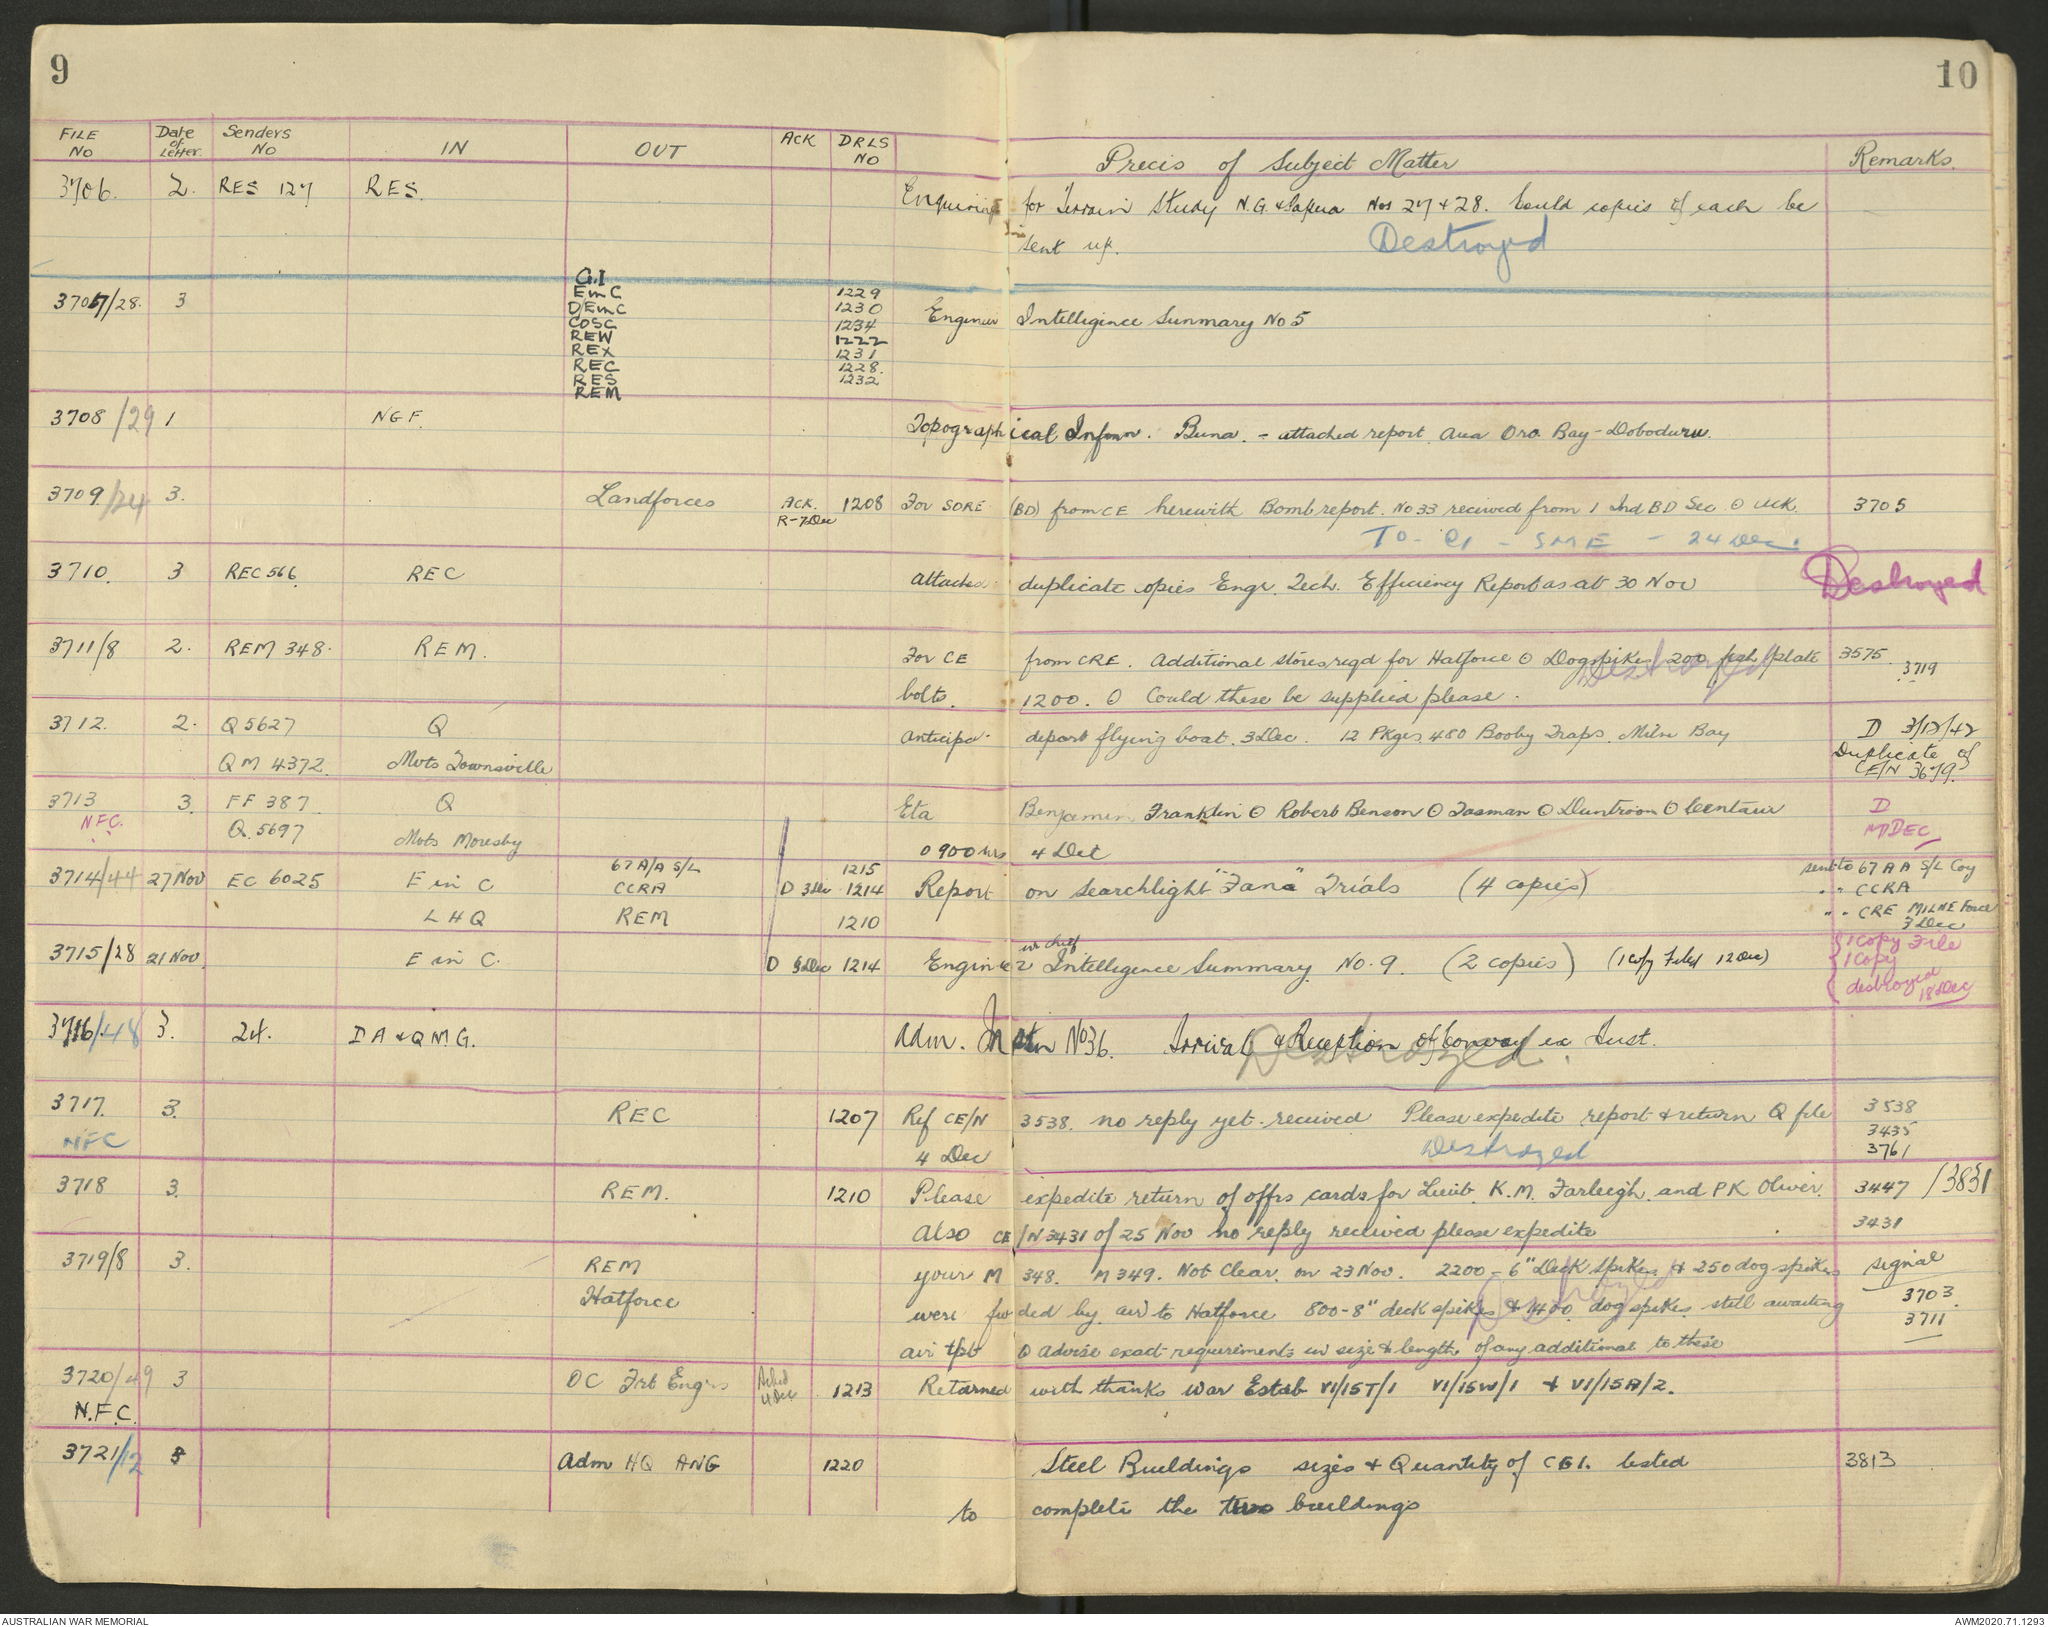 9
10
FILE NO | Date of Letter. | Senders NO | IN | OUT | ACK | DRLS NO | Precis of Subject Matter | Remarks.
3706. 2. RES 127 RES. Enquiring for Terrain Study N.G. & Papua Nos 27 & 28. Could copies of each be
sent up. Destroyed
G.I
3707/28. 3 E in C 1229
D/E in C 1230 Engineer Intelligence Summary No 5
COSC 1234
REW 1222
REX 1231
REC 1228.
RES 1232
REM
3708/29 1 NGF. Topographical Infmn. Buna. - attached report. Area Oro Bay - Dobodura.
3709/24 3. Landforces ACK. 1208 For SORE (BD) from CE herewith Bomb report. No 33 received from 1 Ind BD Sec ⊙ ack. 3705
R-7Dec
To - - SME - 24 Dec.
3710. 3 REC 566. REC attached duplicate copies Engr. Tech. Efficiency Report as at 30 Nov Destroyed
3711/8 2. REM 348. REM. For CE from CRE. Additional stores reqd for Hatforce ⊙ Dogspikes 200 fish plate 3575 3719
Destroyed
bolts. 1200. ⊙ Could these be supplied please.
3712. 2. Q 5627 Q anticipa. depart flying boat. 3 Dec. 12 Pkges. 480 Booby Traps. Milne Bay D 3/12/42
QM 4372. Mvts Townsville Duplicate of
CE/N 3679.
3713 3. FF 387 Q Eta Benjamin Franklin ⊙ Robert Benson ⊙ Tasman ⊙ Duntroon ⊙ Centaur D
NFC. Q. 5697 Mvts Moresby DEC
0900 hrs 4 Dec
3714/44 27 Nov EC 6025 E in C 67 A/A S/L 1215 sent to 67 AA S/L Coy
CCRA D 3 Dec 1214 Report on Searchlight "Fana" Trials (4 copies) " " CCRA
LHQ REM 1210 " " CRE MILNE Force
3 Dec
3715/28 21 Nov. E in C. D 3 Dec 1214 Engineer in chief Intelligence Summary No. 9. (2 copies) (1 copy Filed 12 Dec) 1 Copy File
1 Copy
destroyed
18 Dec
3716/48 3. 24. DA & QMG. Adm. Instn No 36. Arrival & Reception of Convoy ex Aust.
Destroyed.
3717. 3. REC 1207 Ref CE/N 3538. no reply yet received Please expedite report & return Q file 3538
NFC 4 Dec Destroyed 3435
3761
3718 3. REM. 1210 Please expedite return of offrs cards for Lieut. K.M. Farleigh and PK Oliver. 3447 /3831
Also CE/N 3431 of 25 Nov no reply received please expedite 3431
3719/8 3. REM your M 348. M 349. Not Clear. on 23 Nov. 2200 - 6" Deck Spikes & 250 dog spikes signal
Hatforce were fwded by air to Hatforce 800-8" deck spikes & 1400 dog spikes. still awaiting 3703.
Destroyed 3711
air tpt ⊙ Advise exact requirements in size & length of any additional to these
3720/49 3 OC Frt Engrs Acked 4 Dec 1213 Returned with thanks War Estab VI/15T/1 VI/15W/1 & VI/15A/2.
N.F.C.
3721/12 3 Adm HQ ANG 1220 Steel Buildings sizes & Quantity of CGI. listed 3813
to complete the two buildings
AUSTRALIAN WAR MEMORIAL
AWM2020.71.1293